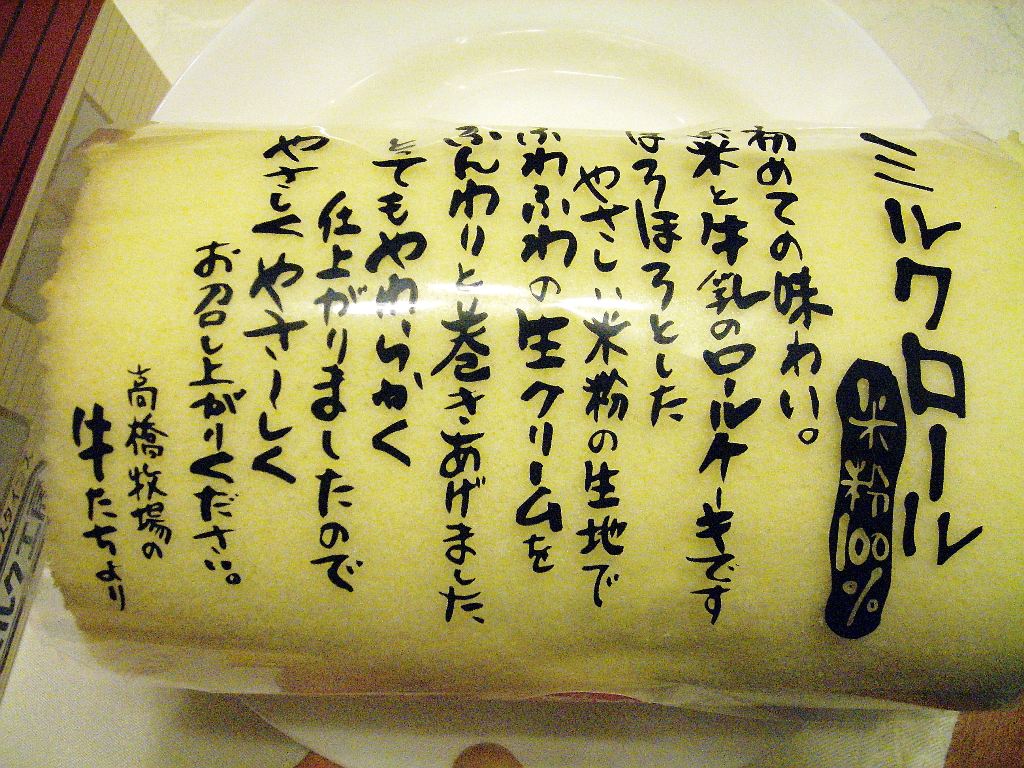 ミルクロール
米粉100%
初めての味わい。
米と牛乳のロールケーキです
ほろほろとした
やさしい米粉の生地で
ふわふわの生クリームを
ふんわりと巻きあげました
とてもやわらかく
仕上がりましたので
やさしくやさーしく
お召し上がりください。
高橋牧場の
牛たちより